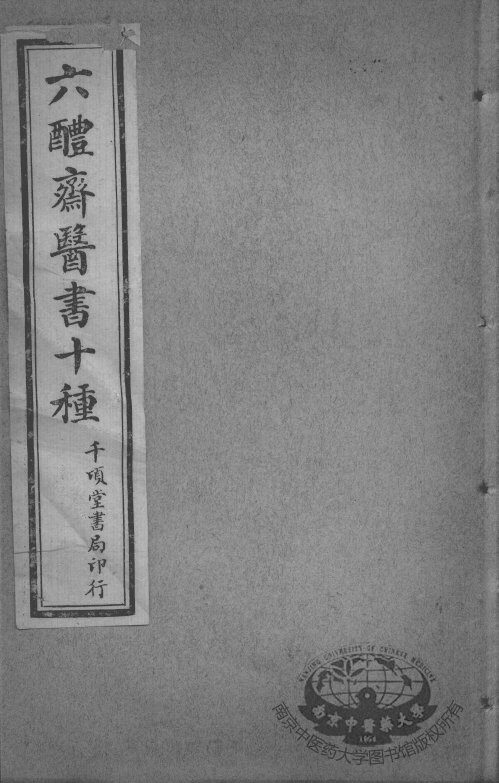 六醴齋醫書十種
千頃堂書局印行
NANJING UNIVERSITY OF CHINESE MEDICINE
南京中醫藥大學
1954
南京中医药大学图书馆版权所有